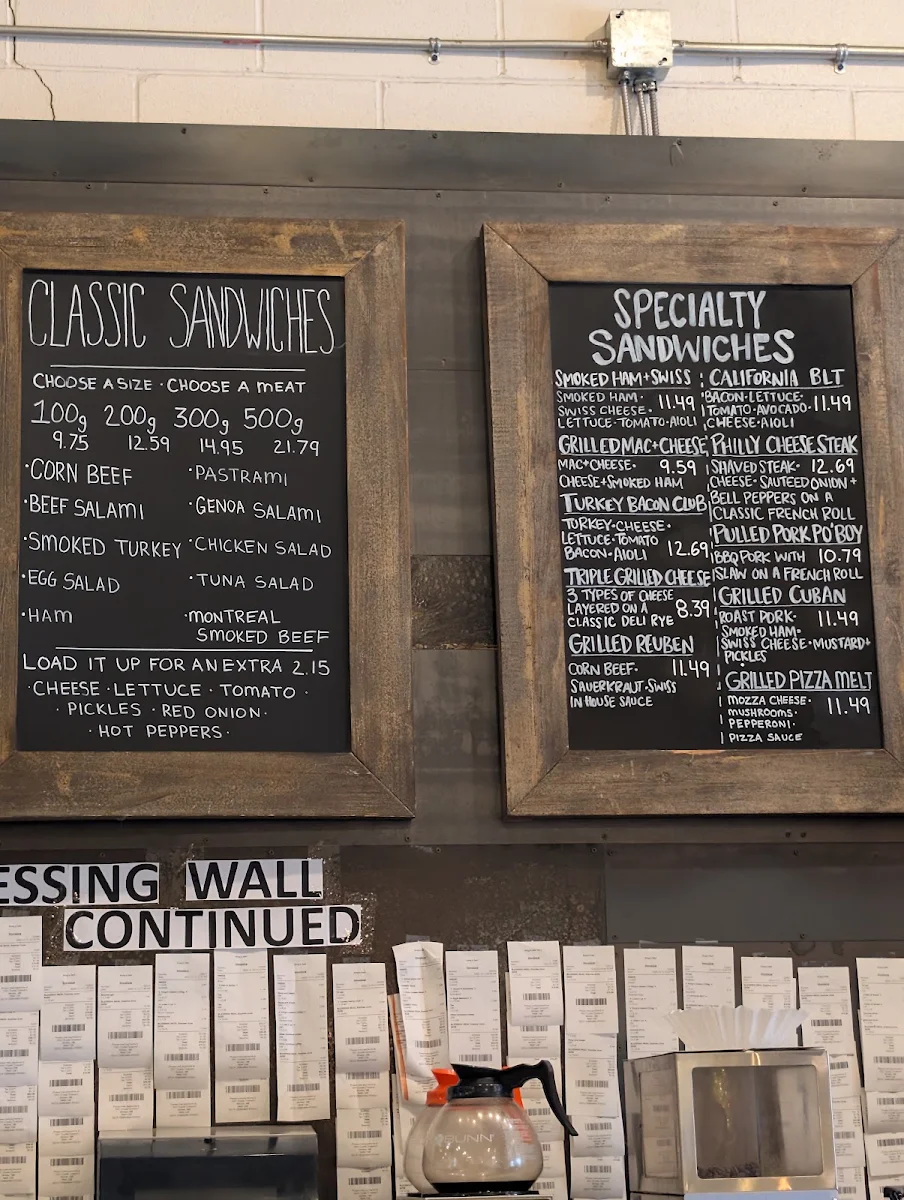 CLASSIC SANDWICHES
CHOOSE A SIZE · CHOOSE A MEAT
100g 200g 300g 500g
9.75 12.59 14.95 21.79
·CORN BEEF ·PASTRAMI
·BEEF SALAMI ·GENOA SALAMI
·SMOKED TURKEY ·CHICKEN SALAD
·EGG SALAD ·TUNA SALAD
·HAM ·MONTREAL
SMOKED BEEF
LOAD IT UP FOR AN EXTRA 2.15
·CHEESE·LETTUCE·TOMATO·
·PICKLES·RED ONION·
·HOT PEPPERS·
SPECIALTY
SANDWICHES
SMOKED HAM+SWISS
SMOKED HAM· 11.49
SWISS CHEESE·
LETTUCE·TOMATO·AIOLI
GRILLED MAC+CHEESE
MAC+CHEESE· 9.59
CHEESE+SMOKED HAM
TURKEY BACON CLUB
TURKEY·CHEESE·
LETTUCE·TOMATO
BACON·AIOLI 12.69
TRIPLE GRILLED CHEESE
3 TYPES OF CHEESE
LAYERED ON A 8.39
CLASSIC DELI RYE
GRILLED REUBEN
CORN BEEF· 11.49
SAUERKRAUT·SWISS
IN HOUSE SAUCE
CALIFORNIA BLT
BACON·LETTUCE·
TOMATO·AVOCADO· 11.49
CHEESE·AIOLI
PHILLY CHEESE STEAK
SHAVED STEAK· 12.69
CHEESE·SAUTEED ONION+
BELL PEPPERS ON A
CLASSIC FRENCH ROLL
PULLED PORK PO'BOY
BBQ PORK WITH 10.79
SLAW ON A FRENCH ROLL
GRILLED CUBAN
ROAST PORK· 11.49
SMOKED HAM·
SWISS CHEESE·MUSTARD+
PICKLES
GRILLED PIZZA MELT
MOZZA CHEESE· 11.49
MUSHROOMS·
PEPPERONI·
PIZZA SAUCE
ESSING WALL
CONTINUED
BUNN